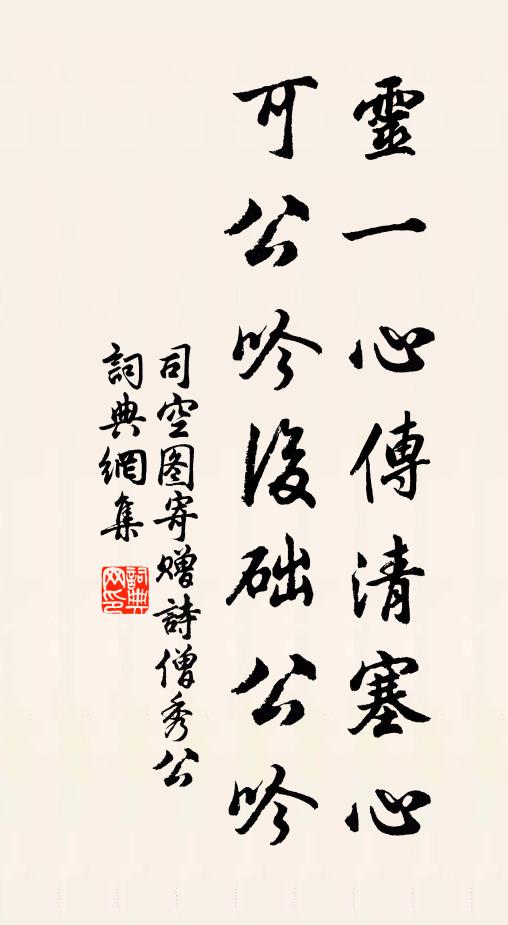 靈一心傳清塞心
可公吟後础公吟
司空图寄赠詩僧秀公
詞典網集
詞典網印